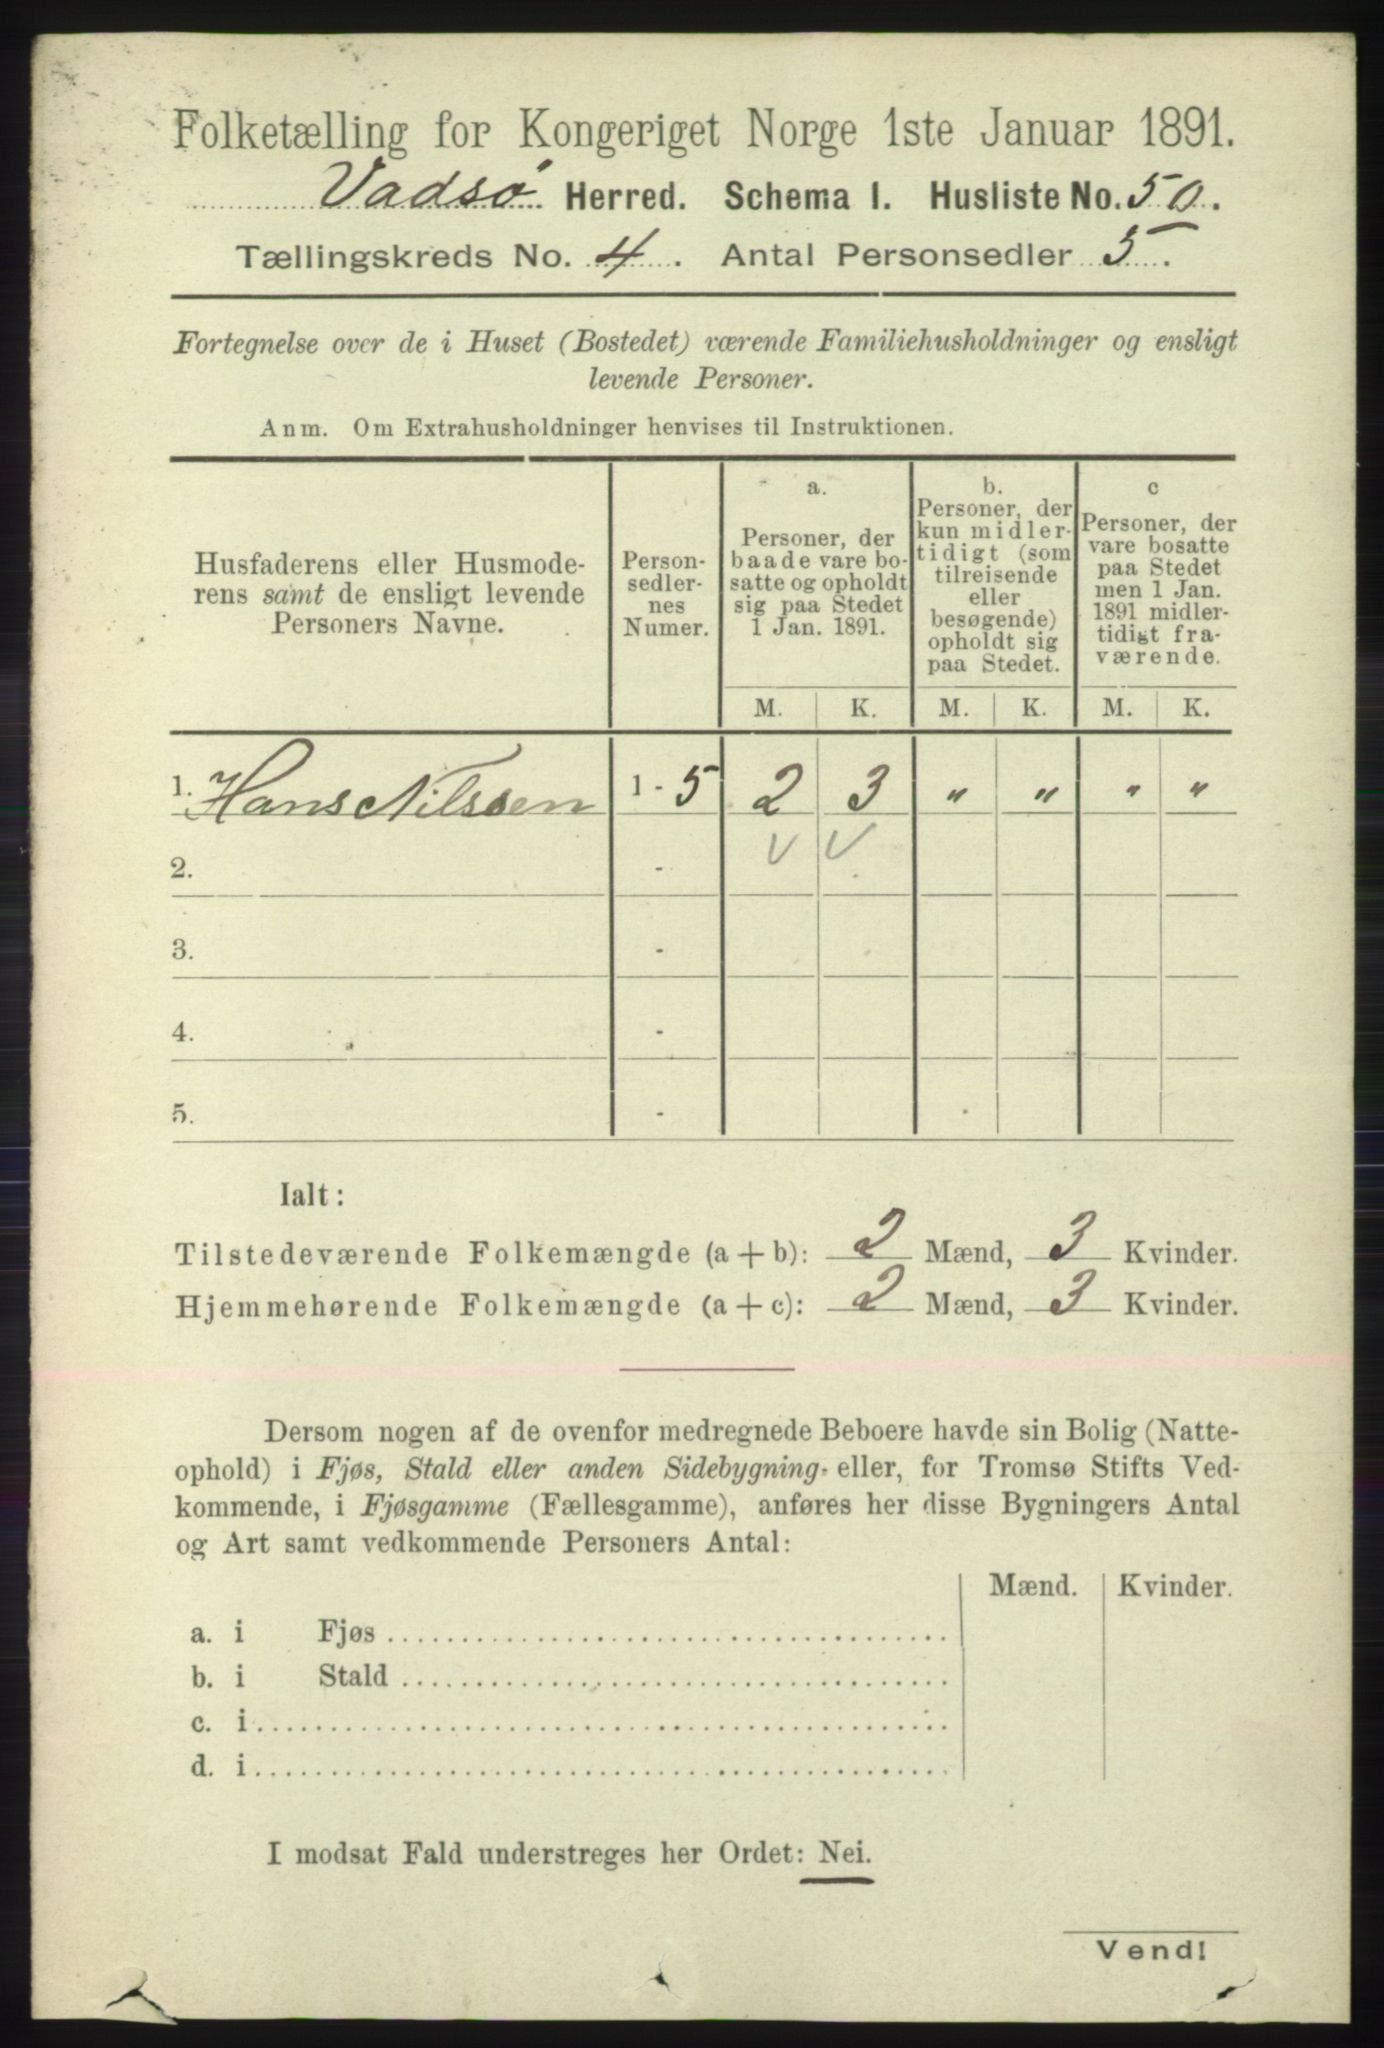 Folketælling for Kongeriget Norge 1ste Januar 1891.
Vadsø Herred. Schema I. Husliste No. 50.
Tællingskreds No. 4. Antal Personsedler 5.
Fortegnelse over de i Huset (Bostedet) værende Familiehusholdninger og ensligt
levende Personer.
Anm. Om Extrahusholdninger henvises til Instruktionen.
Husfaderens eller Husmode-
rens samt de ensligt levende
Personers Navne.
Person-
sedler-
nes
Numer.
a.
Personer, der
baade vare bo-
satte og opholdt
sig paa Stedet
1 Jan. 1891.
b.
Personer, der
kun midler-
tidigt (som
tilreisende
eller
besøgende)
opholdt sig
paa Stedet.
c
Personer, der
vare bosatte
paa Stedet
men 1 Jan.
1891 midler-
tidigt fra-
værende.
M. K. M. K. M. K.
1. Hans Nilssen 1 - 5 2 3 " " " "
2. - V V
3. -
4. -
5. -
Ialt:
Tilstedeværende Folkemængde (a + b): 2 Mænd, 3 Kvinder.
Hjemmehørende Folkemængde (a + c): 2 Mænd, 3 Kvinder.
Dersom nogen af de ovenfor medregnede Beboere havde sin Bolig (Natte-
ophold) i Fjøs, Stald eller anden Sidebygning eller, for Tromsø Stifts Ved-
kommende, i Fjøsgamme (Fællesgamme), anføres her disse Bygningers Antal
og Art samt vedkommende Personers Antal:
Mænd. Kvinder.
a. i Fjøs
b. i Stald
c. i
d. i
I modsat Fald understreges her Ordet: Nei.
Vend!